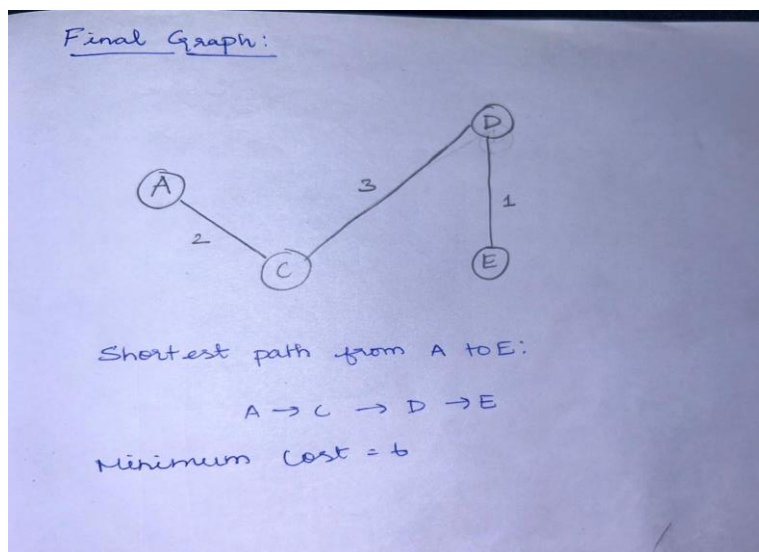 Final Graph:
D
A
3
1
2
C
E
Shortest path from A to E:
A → C → D → E
Minimum Cost = 6